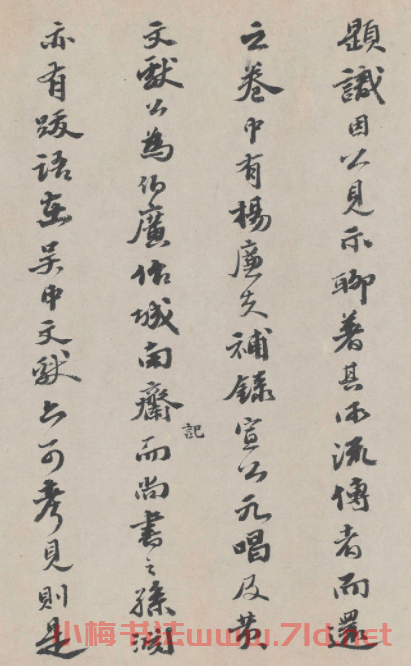 題識因公見示聊著其所流傳者而還
之卷中有楊廉夫補錄宣公九唱及黃
文獻公為伯廣作城南齋而尚書之孫淵
記
亦有跋語在吳中文獻可考見則是
小梅书法www.7ld.net